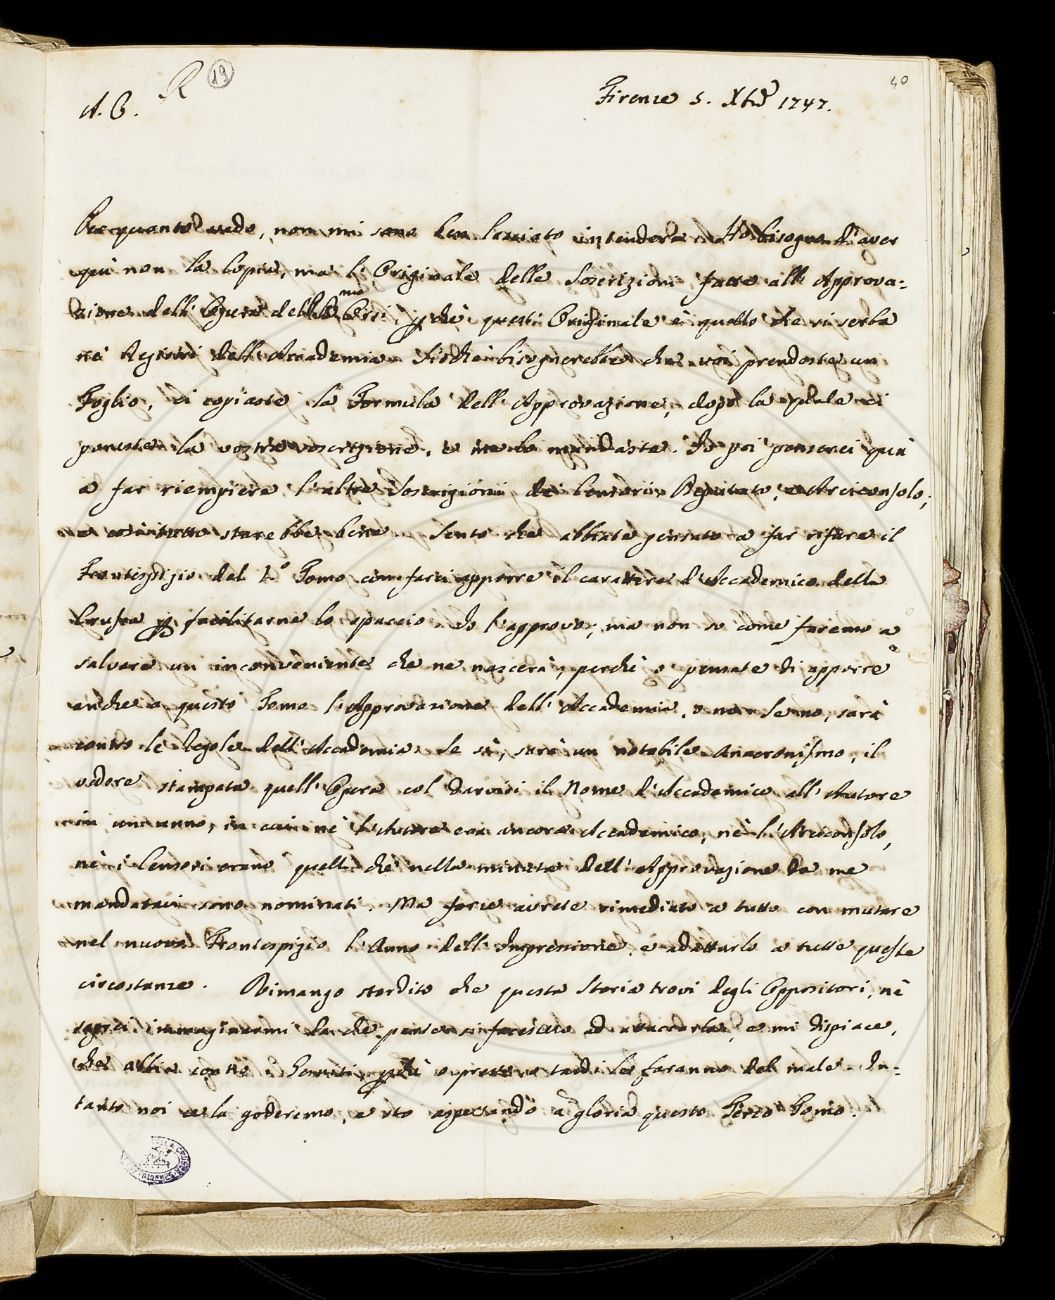 A. C. R (19)
Firenze 5. Xbre 1747.
40
Per quanto vedo, non mi sono ben lasciato intendere. Ho bisogno d'aver
quì non la Copia, ma l'Originale delle Soscrizioni fatte all'Approva=
zione dell'Opera della, chè questi Originale è quello che si serba
nei Registri dell'Accademia. Sicchè bisognerebbe che voi prendeste un
Foglio, vi copiaste la Formula dell'Approvazione, dopo la quale vi
poneste la vostra soscrizione, e me lo mandaste. Io poi penserei quà
a far riempiere l'altre Soscrizioni de' Censori, Deputato, e Arciconsolo,
e così tutto starebbe bene. Sento che abbiate pensato a far rifare il
Frontespizio del 1.º Tomo con farci apporre il carattere d'Accademico della
Crusca p facilitarne lo spaccio. Io l'approvo; ma non so come faremo a
salvare un inconveniente che ne nascerà, perchè o pensate di apporre
anche a questo Tomo l'Approvazione dell'Accademia, o nò. Se no, sarà
contro le Regole dell'Accademia. Se sì, sarà un notabile Anacronismo, il
vedere stampata quell'Opera col darvisi il Nome d'Accademico all'Autore
in un anno, in cui nè l'Autore era ancora Accademico, nè l'Arciconsolo,
nè i Censori erano quelli che nella minuta dell'Approvazione da me
mandatavi sono nominati. Ma forse avrete rimediato a tutto con mutare
nel nuovo Frontespizio l'Anno dell'Impressione, e adattarlo a tutte queste
circostanze. Rimango stordito che questa Storia trovi degli Oppositori, nè
saprei immaginarmi da che parte si facessero ad attaccarla, e mi dispiace,
che abbia contro i, o presto o tardi le faranno del male. In=
tanto noi ce la goderemo, e sto aspettando a gloria questo Terzo Tomo.